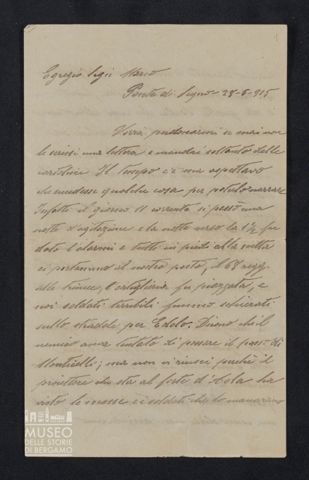 Egregio Sigr Marco
Ponte di Legno 28-6-915
Vorrà perdonarmi se mai non
le scrissi una lettera e mandai soltanto delle
cartoline. Il tempo c'è ma aspettavo
che succedesse qualche cosa per poterlo narrare
Infatti il giorno 11 corrente si passò una
notte d'agitazione e la notte verso la 1½ fu
dato l'allarmi e tutti in piedi alla svelta
si portammo il nostro posto, il 68 regg.
alle trincee, l'artiglieria fu piazzata, e
noi soldati terribili fummo schierati
sullo stradale per Edolo. Dicono che il
nemico aveva tentato di passare il passo di
Monticelli; ma non vi riuscì perché il
proiettore che sta al forte d'
visto le mosse e i soldati che lo
MUSEO
DELLE STORIE
DI BERGAMO